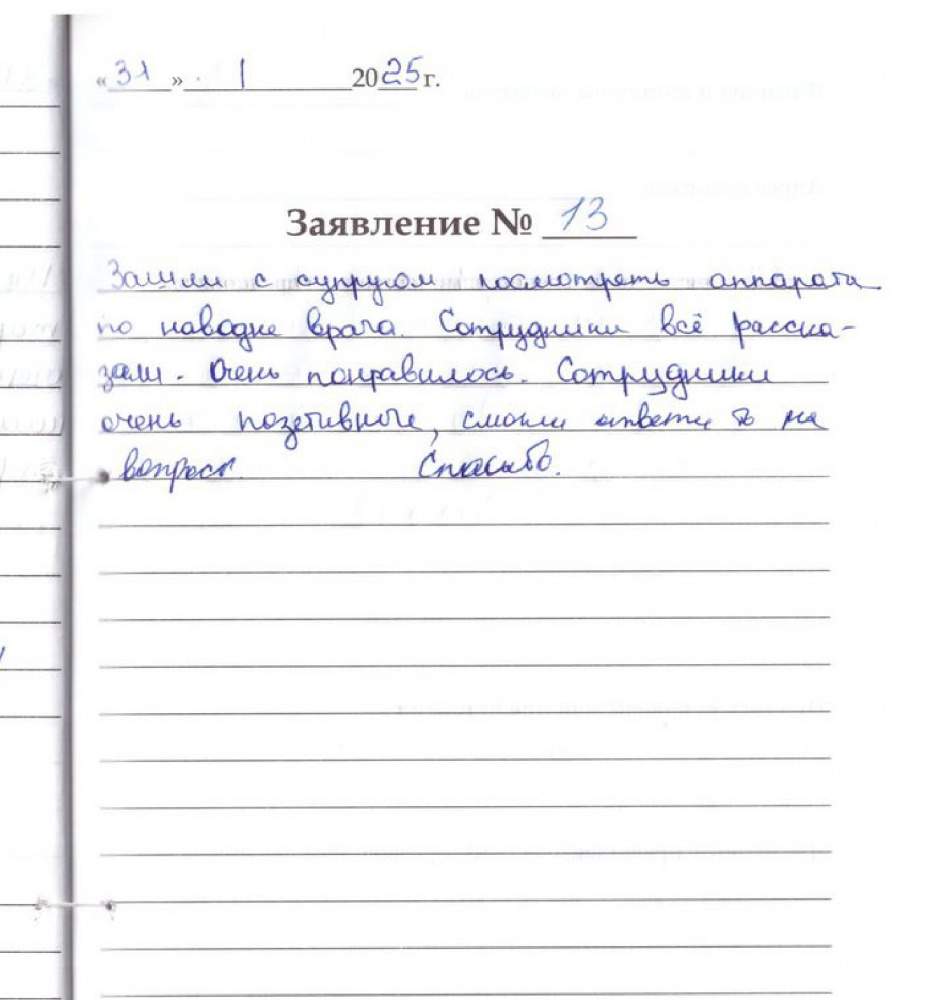 «31» 1 2025 г.
Заявление № 13
Зашли с супругом посмотреть аппарата
по наводке врача. Сотрудники всё расска-
зали. Очень понравилось. Сотрудники
очень позетивные, смогли ответить на
вопрос. Спасибо.